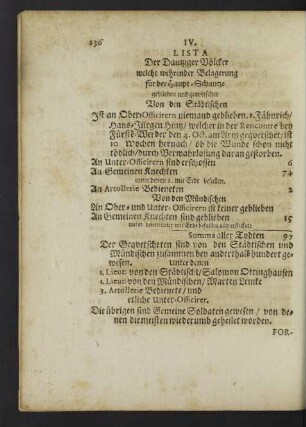 136
IV.
LISTA
Der Dantziger Völcker
welche wehrender Belagerung
für der Haupt-Schantze
geblieben und gequetschet
Von den Städtischen
Ist an Ober-Officirern niemand geblieben. 1. Fähnrich/
Hans Jürgen Hintz/ welcher in der Rencontre bey
Fürste-Werder den 4. Oct. am Arm gequetschet/ ist
10. Wochen hernach/ ob die Wunde schon nicht
tödlich/ durch Verwahrlosung daran gestorben.
An Unter-Officirern sind erschossen 6
An Gemeinen Knechten 74
unter denen 2. mit Erde befallen.
An Artollerie Bedieneten 2
Von den Mündischen
An Ober- und Unter-Officirern ist keiner geblieben
An Gemeinen Knechten sind geblieben 15
unter denen mit Erde befallen und ersticket
Summa aller Todten 97
Der Gequetscheten sind von den Städtischen und
Mündischen zusammen bey anderthalb hundert ge-
wesen. unter denen
1. Lieut: von den Städtisch/ Salomon Ottinghausen
1. Lieut: von den Mündischen/ Marten Lemke
3. Artollerie Bedienete/ und
etliche Unter-Officirer.
Die übrigen sind Gemeine Soldaten gewesen/ von de-
nen die meisten wiederumb geheilet worden.
FOR-